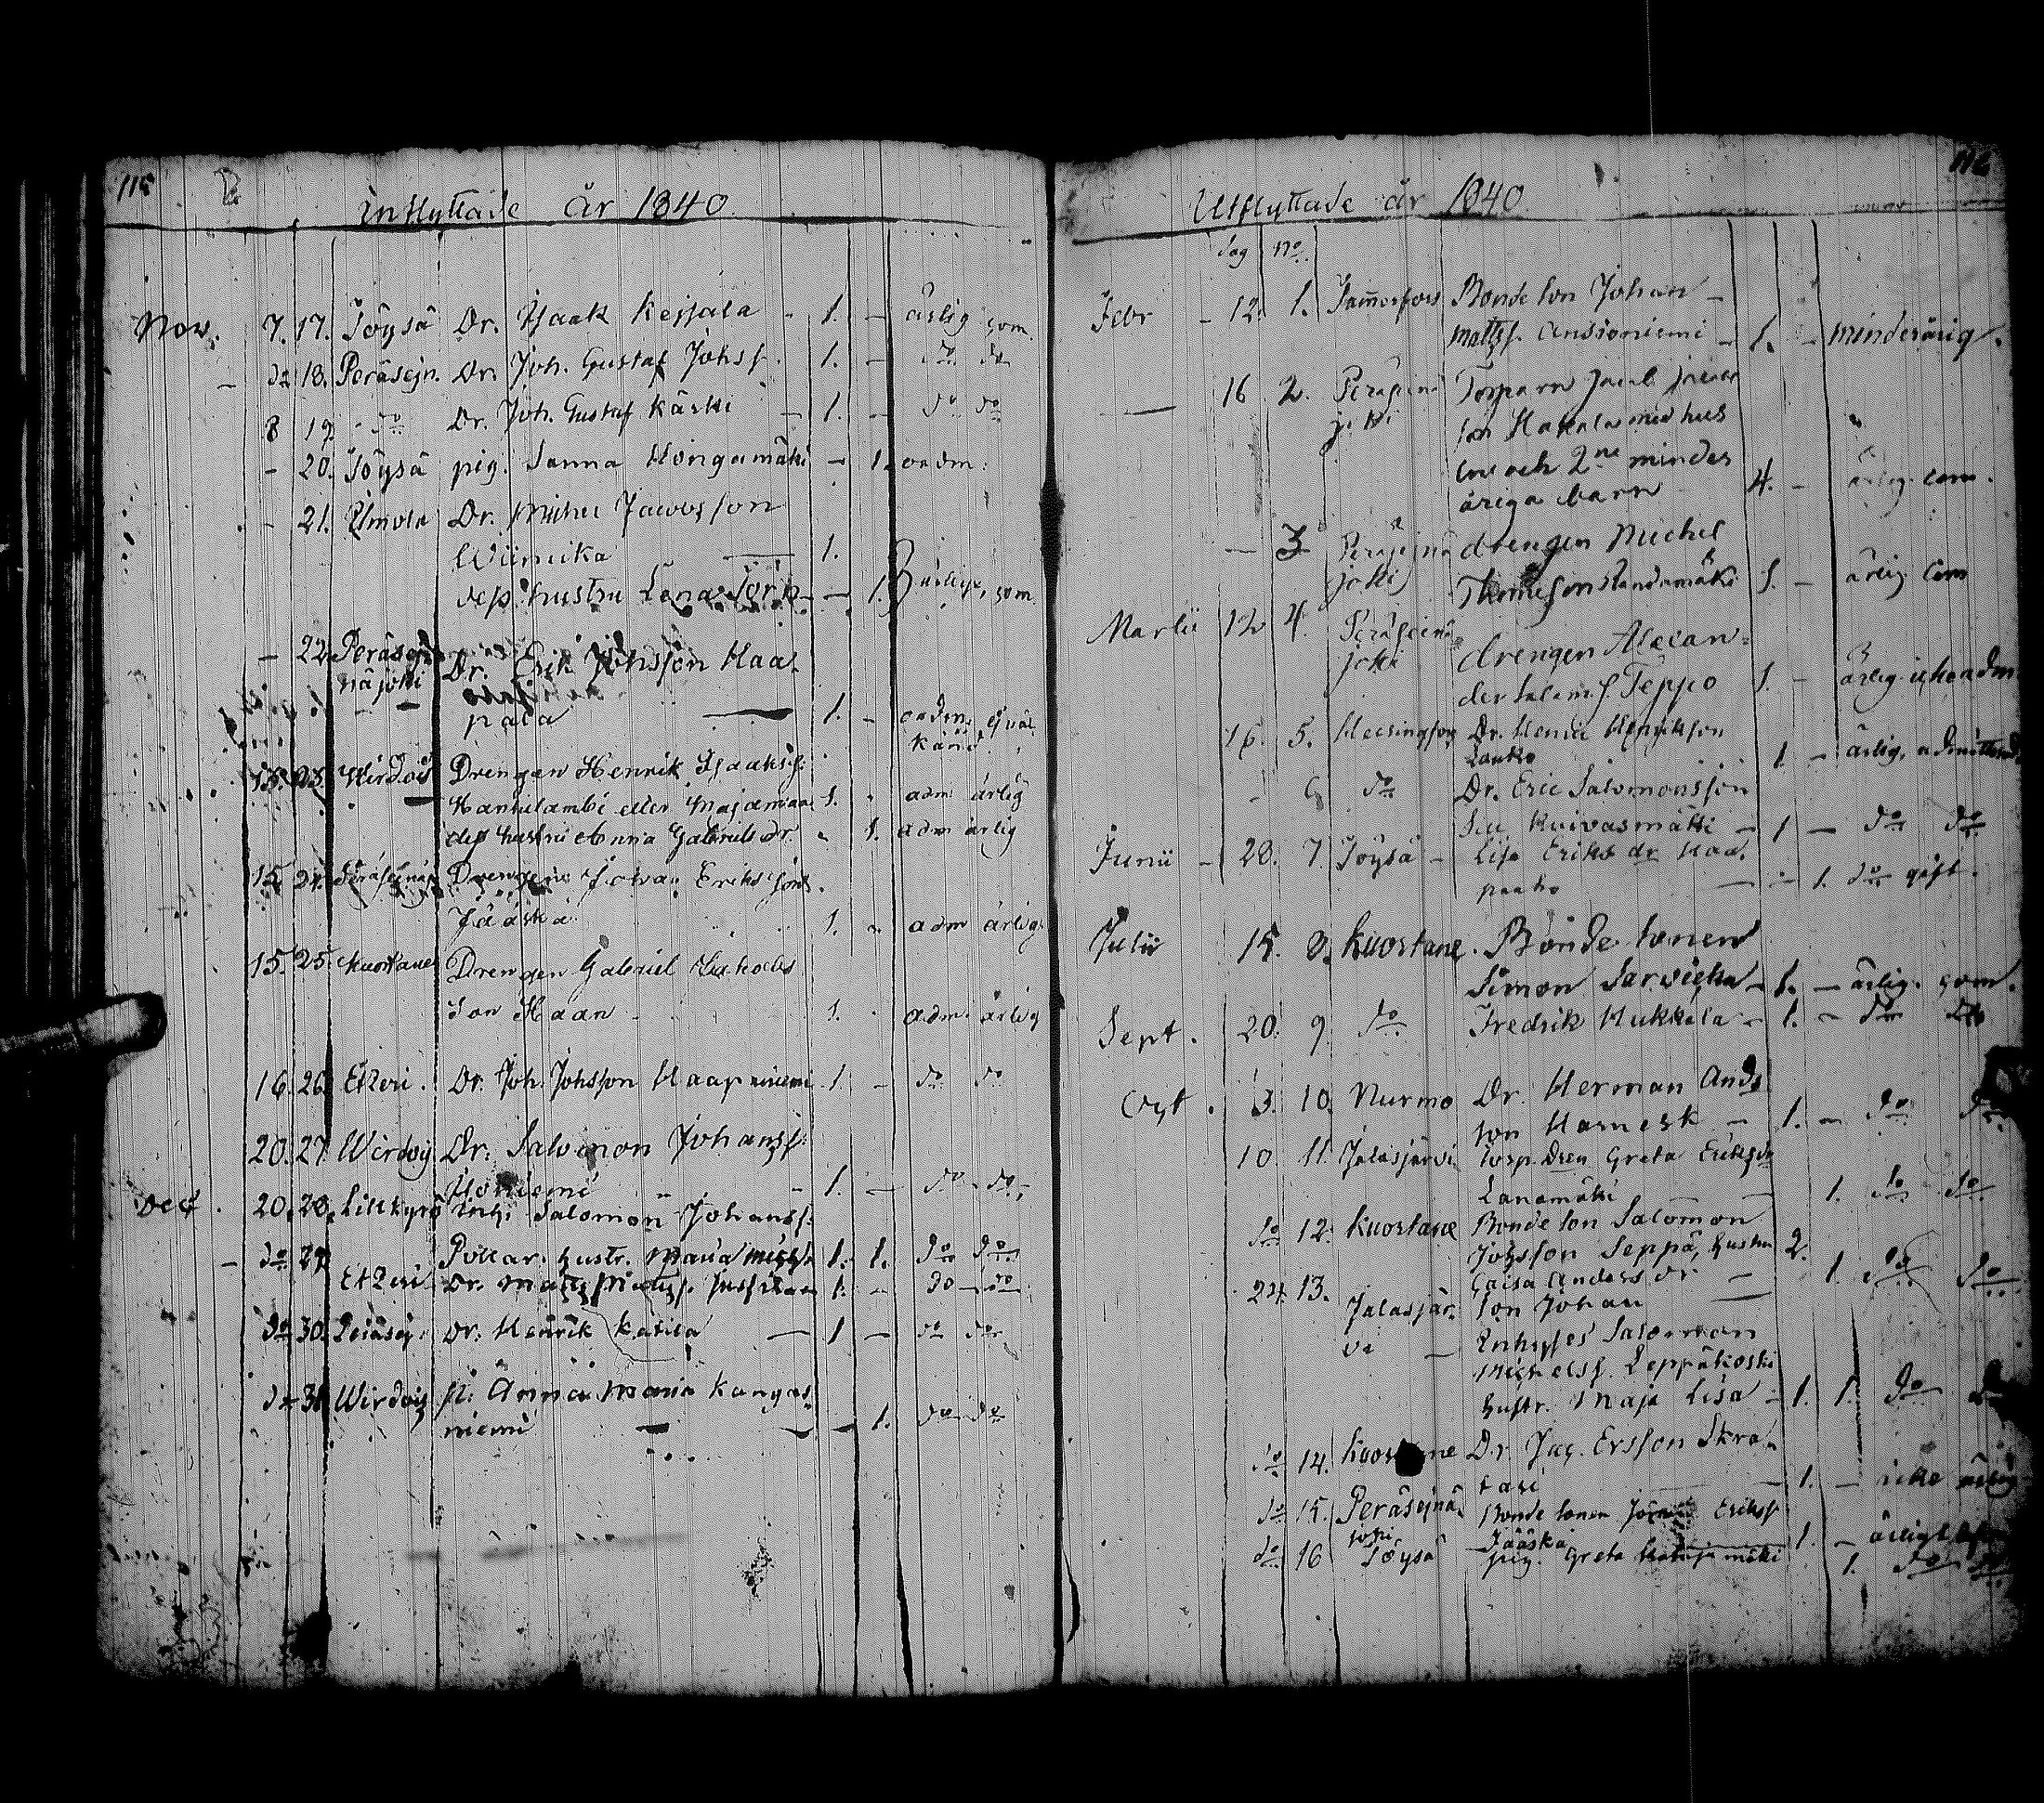 115
Inflyttade år 1840
Nov. 7. 17. Töysä Dr. Isaak Keisala - 1. - ärlig com.
- do 18. Peräsejn. Dr. Joh. Gustaf Johsf. 1. - do do
8 19 - do Dr. Joh. Gustaf Kärki - 1. - do do
- 20. Töysä pig. Sanna Hongamäki - 1. oadm:
- 21. Ilmola Dr. Michel Jacobsson
Wiinika 1.
dess hustru Lena - - 1. ärlige, com.
- 22 Peräsej Dr. Erik Johsson Haa
näjoki
pala 1. - oadm. ej väl
känd.
15. 23. Wirdois Drengen Henrik Isaaksf.
Hankilambi eller Majamaa 1. - adm ärlig
dess hustru Anna Gabriels dr - 1. adm ärlig
15 24. Peräseinäj Drengen Johan Eriks son
Jääskä 1. - adm ärlig
15. 25. Kuortane Drengen Gabriel
son Haan - 1. - adm. ärlig
16. 26. Etzeri. Dr. Joh. Johsson Haapaniemi 1. - do do
20. 27. Wirdois Dr. Salomon Johansf.
- 1. - do do
Dec. 20. 28. Lillkyrö Inh. Salomon Johansf.
- do 29 hustr. Maria 1. 1. do do
Etzeri Dr. Matts Mattsf. 1. - do - do
do 30. Peräsej. Dr. Henrik Katila - 1 - do do
do 31 Wirdois p. Anna Maria Kangas
niemi - - 1. do do
116
Utflyttade år 1840
dag No
Febr - 12. 1. Tammerfors Bonde son Johan -
Mattsf. Anssioniemi - 1. - minderårig.
- 16 2. Peräseinä Torparn Jacob
joki son Hakala med hus
tru och 2ne minder
åriga barn 4. - ärlig com.
- 3 Peräseinä drengen Michel
joki Thomasson Randamäki 1. - ärlig com
Martii 12 4. Peräseinä drengen Alexan-
joki
der Salom.f. Teppo 1. - ärlig icke adm
16. 5. Helsingfors Dr. Henric Henriksson
Lauko 1 - ärlig. admitterad
- 6 do Dr. Eric Salomonsson
Kuivasmäki - 1 - do do
Junii - 28. 7. Töysä - Lisa Eriks dr Haa.
paaho - - 1. do gift.
Julii 15. 8. Kuortane. Bonde sonen
Simon Sarvicka - 1. - ärlig. com.
Sept. 20. 9 do Fredrik Hukkala - 1. - do do
Oct. 3. 10. Nurmo Dr. Herman Ands
son Harnesk - 1. - do do
10. 11. Jalasjärvi Greta Eriksdr
Lanamäki - 1. do do
do 12. Kuortane Bonde son Salomon
Johsson Seppä, hustru 2.
Caisa Anders dr - 1. do do
24. 13. Jalasjär son Johan
vi - Inhyses Salomon
Michelsf. Leppäkoski
hustr. Maja Lisa - 1. 1. do do
do 14. Kuortane Dr. Jac. Ersson Skra-
tari - 1. - icke ärlig
do 15. Peräsejnä Bonde sonen Eriksf
joki Jääskä 1. - ärlig
do 16 Töysä pig. Greta 1. do do